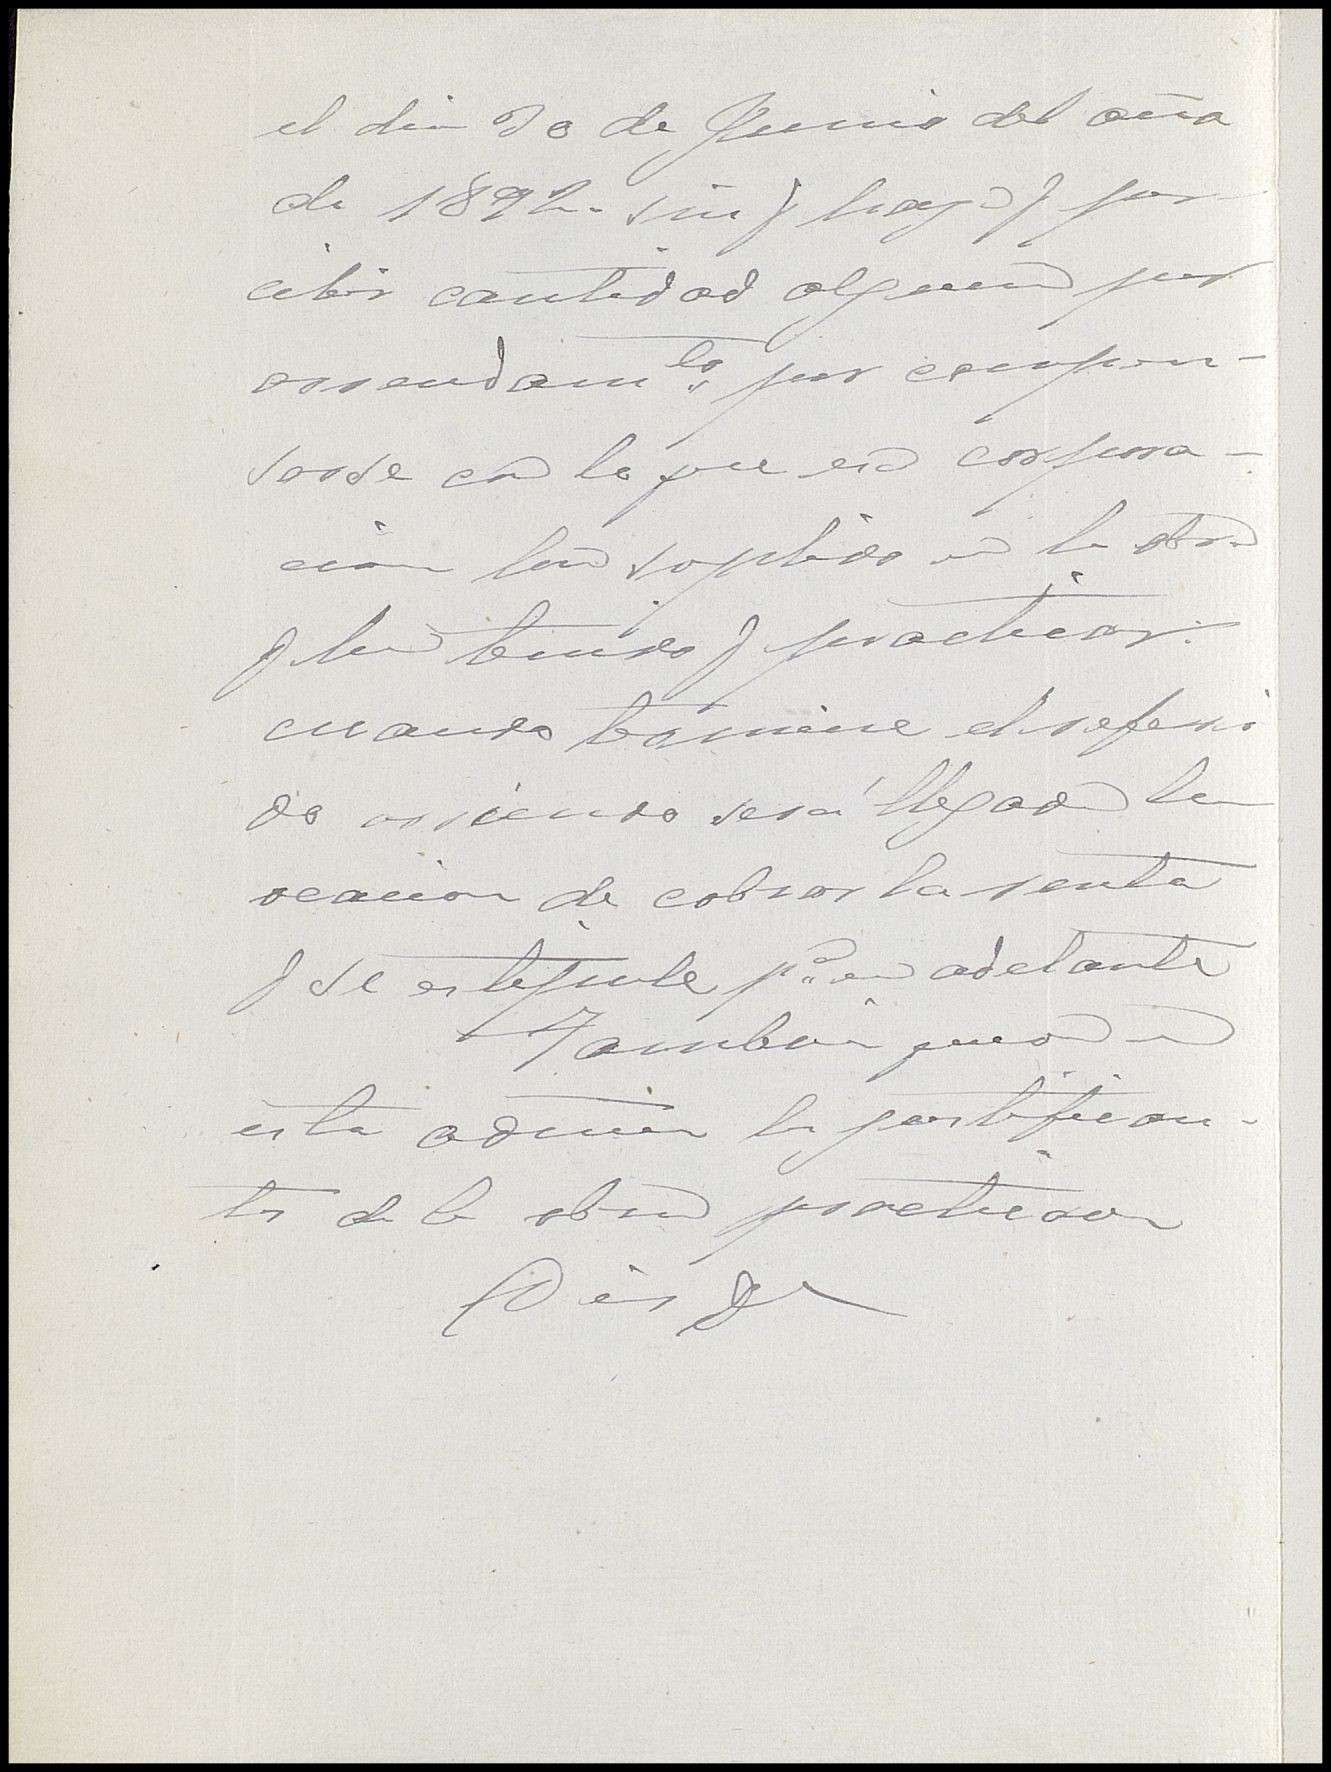 el dia 30 de Junio del año
de 1892. sin q haya q per-
cibir cantidad alguna por
arrendamtos, por compen-
sarse con lo que esa corpora-
cion ha suplido en la obra
q ha tenido q practicar.
cuando termine el referi
do arriendo será llegada la
ocacion de cobrar la renta
q se estipule pa en adelante
Tambien queda en
esta admon los justifican-
tes de la obra practicada